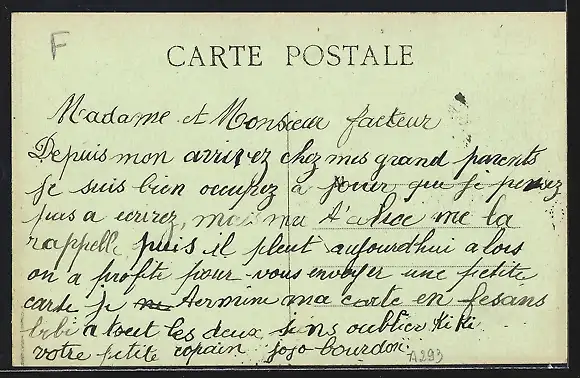 F
CARTE POSTALE
Madame et Monsieur facteur
Depuis mon arrivez chez mes grand parents
je suis bien occupez a jouer que je pensez
pas a ecrirez, mais ma t'alice me la
rappelle puis il pleut aujourdhui alors
on a profite pour vous envoyer une petite
carte je termine ma carte en fesans
bibi a tout les deux sans oublier Kiki
votre petite copain jojo bourdon
A293